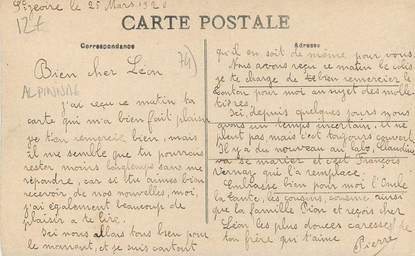 le 25 Mars 192
12+
CARTE POSTALE
Correspondance
Adresse
74)
ALPININAE
Bien cher Léon
J'ai reçu ce matin ta
carte qui m'a bien fait plaisir
je t'en remercie bien, mais
il me semble que tu pourrais
rester moins longtemps sans me
répondre, car si tu aimes bien
recevoir de nos nouvelles, moi,
j'ai également beaucoup de
plaisir a te lire.
Ici nous allons tous bien pour
le moment, et je suis certain
qu'il en soit de même pour vous.
Nous avons reçu ce matin le colis
je te charge de te bien remercier le
tonton pour moi au sujet des molle-
tières.
Ici, depuis quelques jours nous
avons un temps incertain, il ne
pleut pas mais c'est toujours couvert.
Il y a du nouveau au labo, Claudine
va se marier et c'est François
Vernay qui l'a remplacé.
Embrasse bien pour moi l'Oncle
la tante, les cousins, cousine ainsi
que la famille Pion et reçois cher
Léon les plus douces caresses de
ton frère qui t'aime
Pierre